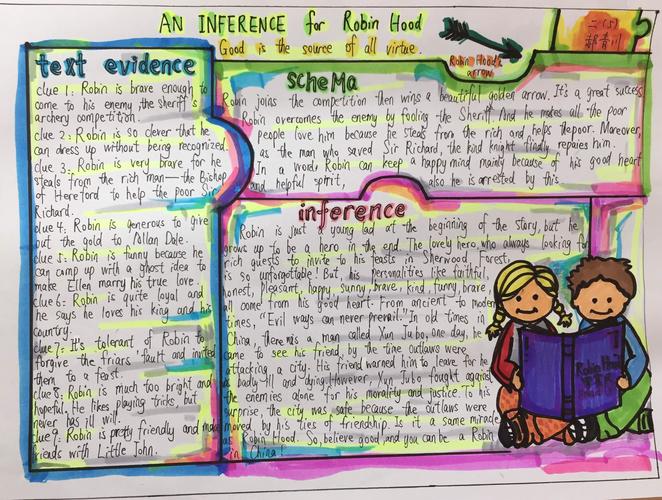 AN INFERENCE for Robin Hood
Good is the source of all virtue.
Robin Hood's
arrow
二(5)
text evidence
clue 1: Robin is brave enough to
come to his enemy the sheriff's
archery competition.
clue 2: Robin is so clever that he
can dress up without being recognized.
clue 3: Robin is very brave for he
steals from the rich man—the Bishop
of Hereford to help the poor Sir
Richard.
clue 4: Robin is generous to give
out the gold to Allan Dale.
clue 5: Robin is funny because he
can comp up with a ghost idea to
make Ellen marry his true love.
clue 6: Robin is quite loyal and
he says he loves his king and his
country.
clue 7: It's tolerant of Robin to
forgive the friars' fault and invited
them to a feast.
clue 8: Robin is much too bright and
hopeful. He likes playing tricks, but
never has ill will.
clue 9: Robin is pretty friendly and make
friends with Little John.
scheMa
Robin joins the competition then wins a beautiful golden arrow. It's a great success
Robin overcomes the enemy by fooling the Sheriff. And he makes all the poor
people love him because he steals from the rich and helps the poor. Moreover,
as the man who saved Sir Richard, the kind knight finally repaies him.
In a word, Robin can keep a happy mind mainly because of his good heart
and helpful spirit, also he is arrested by this.
inference
Robin is just a young lad at the beginning of the story, but he
grows up to be a hero in the end. The lovely hero who always looking for
rich guests to invite to his feasts in Sherwood Forest,
is so unforgotable! But his personalities like faithful,
honest, pleasant, happy, sunny, brave, kind, funny, brave,
all come from his good heart. From ancient to modern
times, "Evil ways can never prevail." In old times in
China, there is a man called Xun Jubo, one day, he
came to see his friend by the time outlaws were
attacking a city. His friend warned him to leave for he
is badly ill and dying. However, Xun Jubo fought against
the enemies alone for his morality and justice. To his
surprise, the city was safe because the outlaws were
moved by his ties of friendship. Is it a same miracle
as Robin Hood. So, believe good and you can be a Robin
in China!
Robin Hood